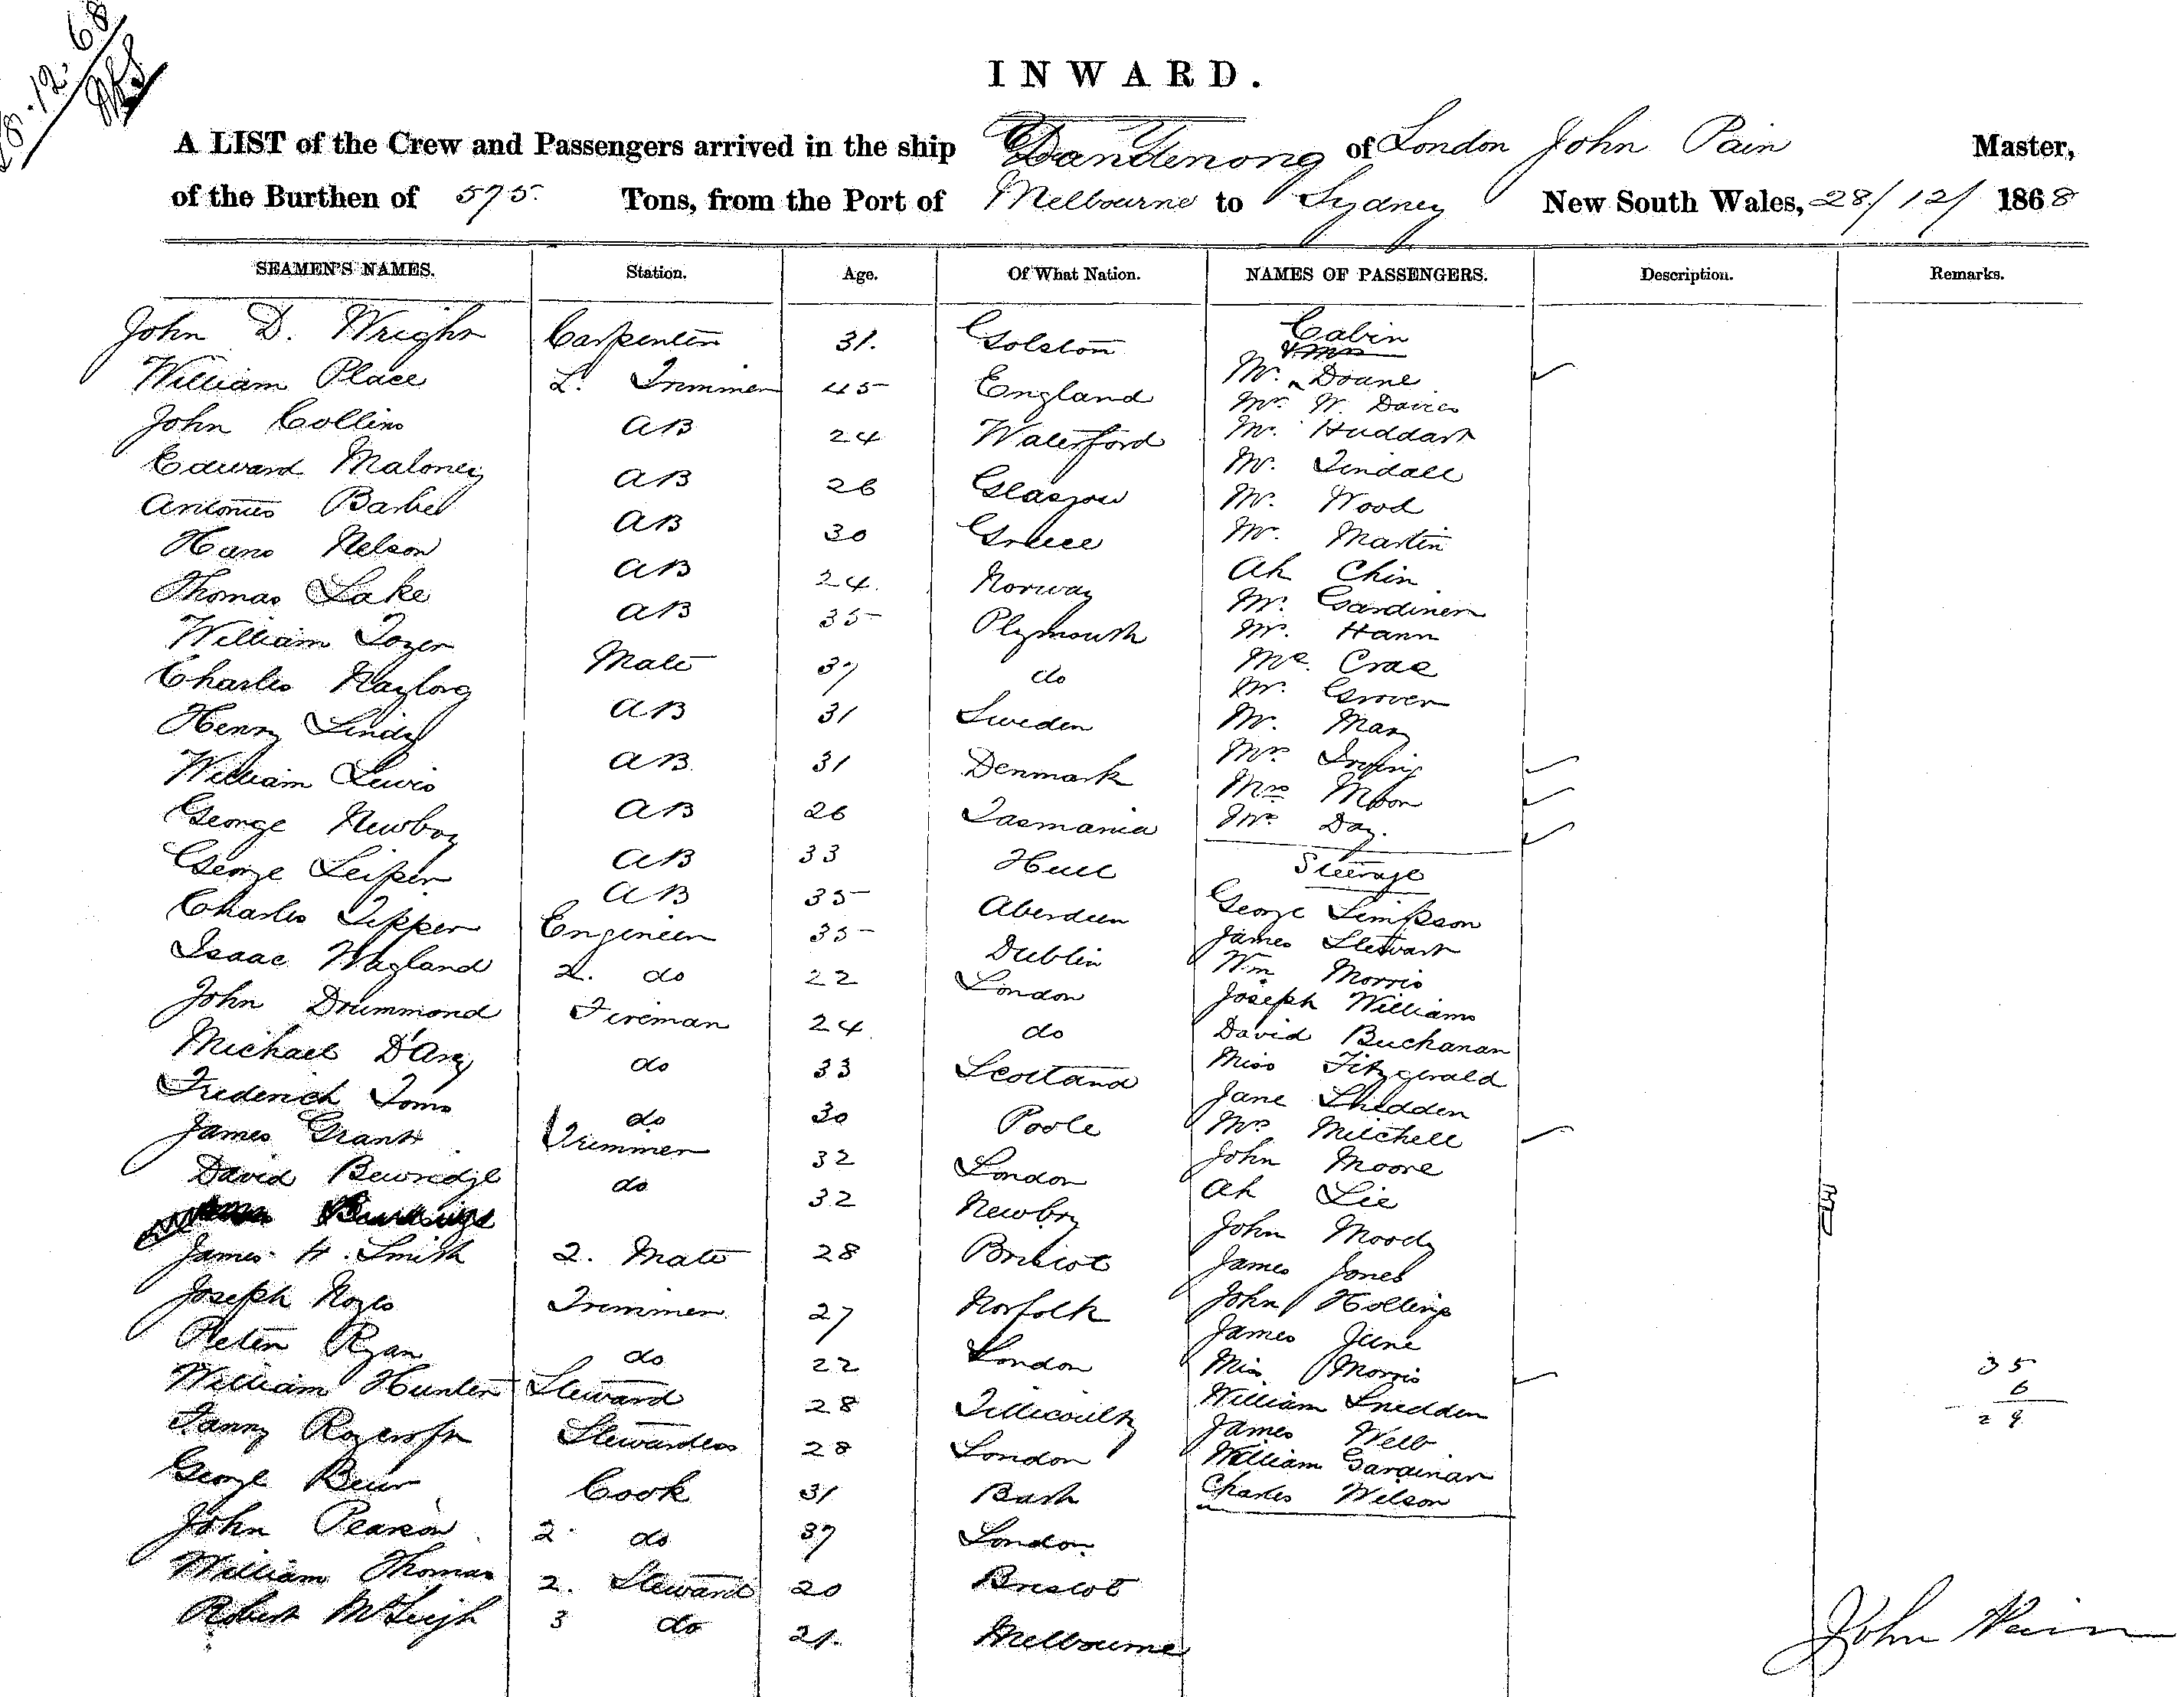 28.12.68
INWARD.
A LIST of the Crew and Passengers arrived in the ship Dandenong of London John Pain Master,
of the Burthen of 575. Tons, from the Port of Melbourne to Sydney New South Wales, 28/12/1868
SEAMEN'S NAMES. Station. Age. Of What Nation. NAMES OF PASSENGERS. Description. Remarks.
John D. Wright Carpenter 31. Golston
William Place L. Trimmer 45 England
John Collins AB 24 Waterford
Edward Maloney AB 26 Glasgow
Antonies Barbe AB 30 Greece
Hans Nelson AB 24. Norway
Thomas Lake AB 35 Plymouth
William Tozer Mate 37 do
Charles AB 31 Sweden
Henry Lindy AB 31 Denmark
William Lewis AB 26 Tasmania
George Newboy AB 33 Hull
George Leiper AB 35 Aberdeen
Charles Tipper Engineer 35 Dublin
Isaac Wagland 2. do 22 London
John Drummond Fireman 24 do
Michael D'Arcy do 33 Scotland
Frederick Toms do 30 Poole
James Grant Trimmer 32 London
David do 32 Newbry
James H. Smith 2. Mate 28 Bristol
Joseph Noyes Trimmer 27 Norfolk
Peter Ryan do 22 London
William Hunter Steward 28 Tillicoultry
Fanny Roycroft Stewardess 28 London
George Cook 31 Bath
John Pearson 2 do 37 London
William Thomas 2. Steward 20 Bristol
Robert McLeigh 3 do 21. Melbourne
Cabin
& Mrs
Mr. Doane
Mr. W. Davies
Mr. Huddart
Mr. Tindall
Mr. Wood
Mr. Martin
Ah Chin
Mr. Gardiner
Mr. Hann
Mc. Crae
Mr. Grover
Mr. May
Mrs Irving
Mrs Moon
Mrs Day.
Steerage
George Simpson
James Stewart
Wm Morris
Joseph Williams
David Buchanan
Miss Fitzgerald
Jane Shedden
Mrs Mitchell
John Moore
Ah Lie
John Moody
James Jones
John Hollings
James June
Miss Morris
William Snedden
James Webb
William Gardinar
Charles Wilson
35
6
29
John Pain